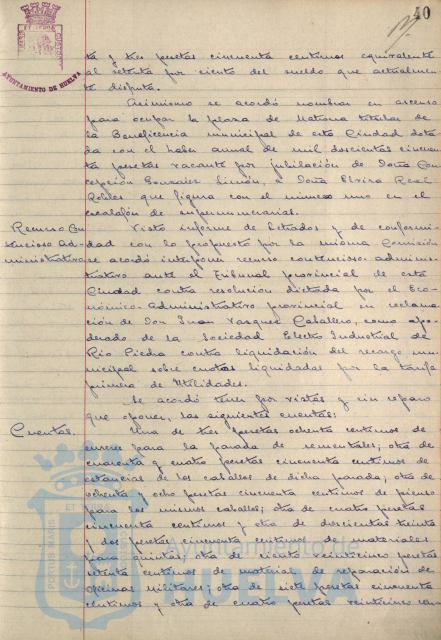 40
AYUNTAMIENTO DE HUELVA
ta y tres pesetas cincuenta centimos equivalente
al setenta por ciento del sueldo que actualmen-
te disfruta.
Asimismo se acordó nombrar en ascenso
para ocupar la plaza de Matrona titular de
la Beneficencia municipal de esta Ciudad dota-
da con el haber anual de mil doscientas cincuen-
ta pesetas vacante por jubilación de Doña Con-
cepción González Simón, a Doña Elvira Real
Robles que figura con el número uno en el
escalafón de supernumerarias.
Recurso Con-
tencioso Ad-
ministrativo
Visto informe de Letrados y de conformi-
dad con lo propuesto por la misma Comisión
se acordó interponer recurso contencioso-adminis-
trativo ante el Tribunal provincial de esta
Ciudad contra resolución dictada por el Eco-
nómico-Administrativo provincial en reclama-
ción de Don Juan Vazquez Caballero, como apo-
derado de la Sociedad Electro Industrial de
Rio Piedra contra liquidación del recargo mu-
nicipal sobre cuotas liquidadas por la tarifa
primera de Utilidades.
Se acordó tener por vistas y sin reparo
que oponer, las siguientes cuentas:
Cuentas.
Una de tres pesetas ochenta centimos de
enseres para la parada de sementales; otra de
cuarenta y cuatro pesetas cincuenta centimos de
estancias de los caballos de dicha parada; otra de
ochenta y ocho pesetas cincuenta centimos de pienso
para los mismos caballos; otra de cuatro pesetas
cincuenta centimos y otra de doscientas treinta
y dos pesetas cincuenta centimos de materiales
para quintas; otra de ciento veinticinco pesetas
setenta centimos de material de reparación de
oficinas militares; otra de siete pesetas cincuenta
centimos y otra de cuatro pesetas veinticinco cen
PORTUS MARIS
Ayuntamiento de
HUELVA